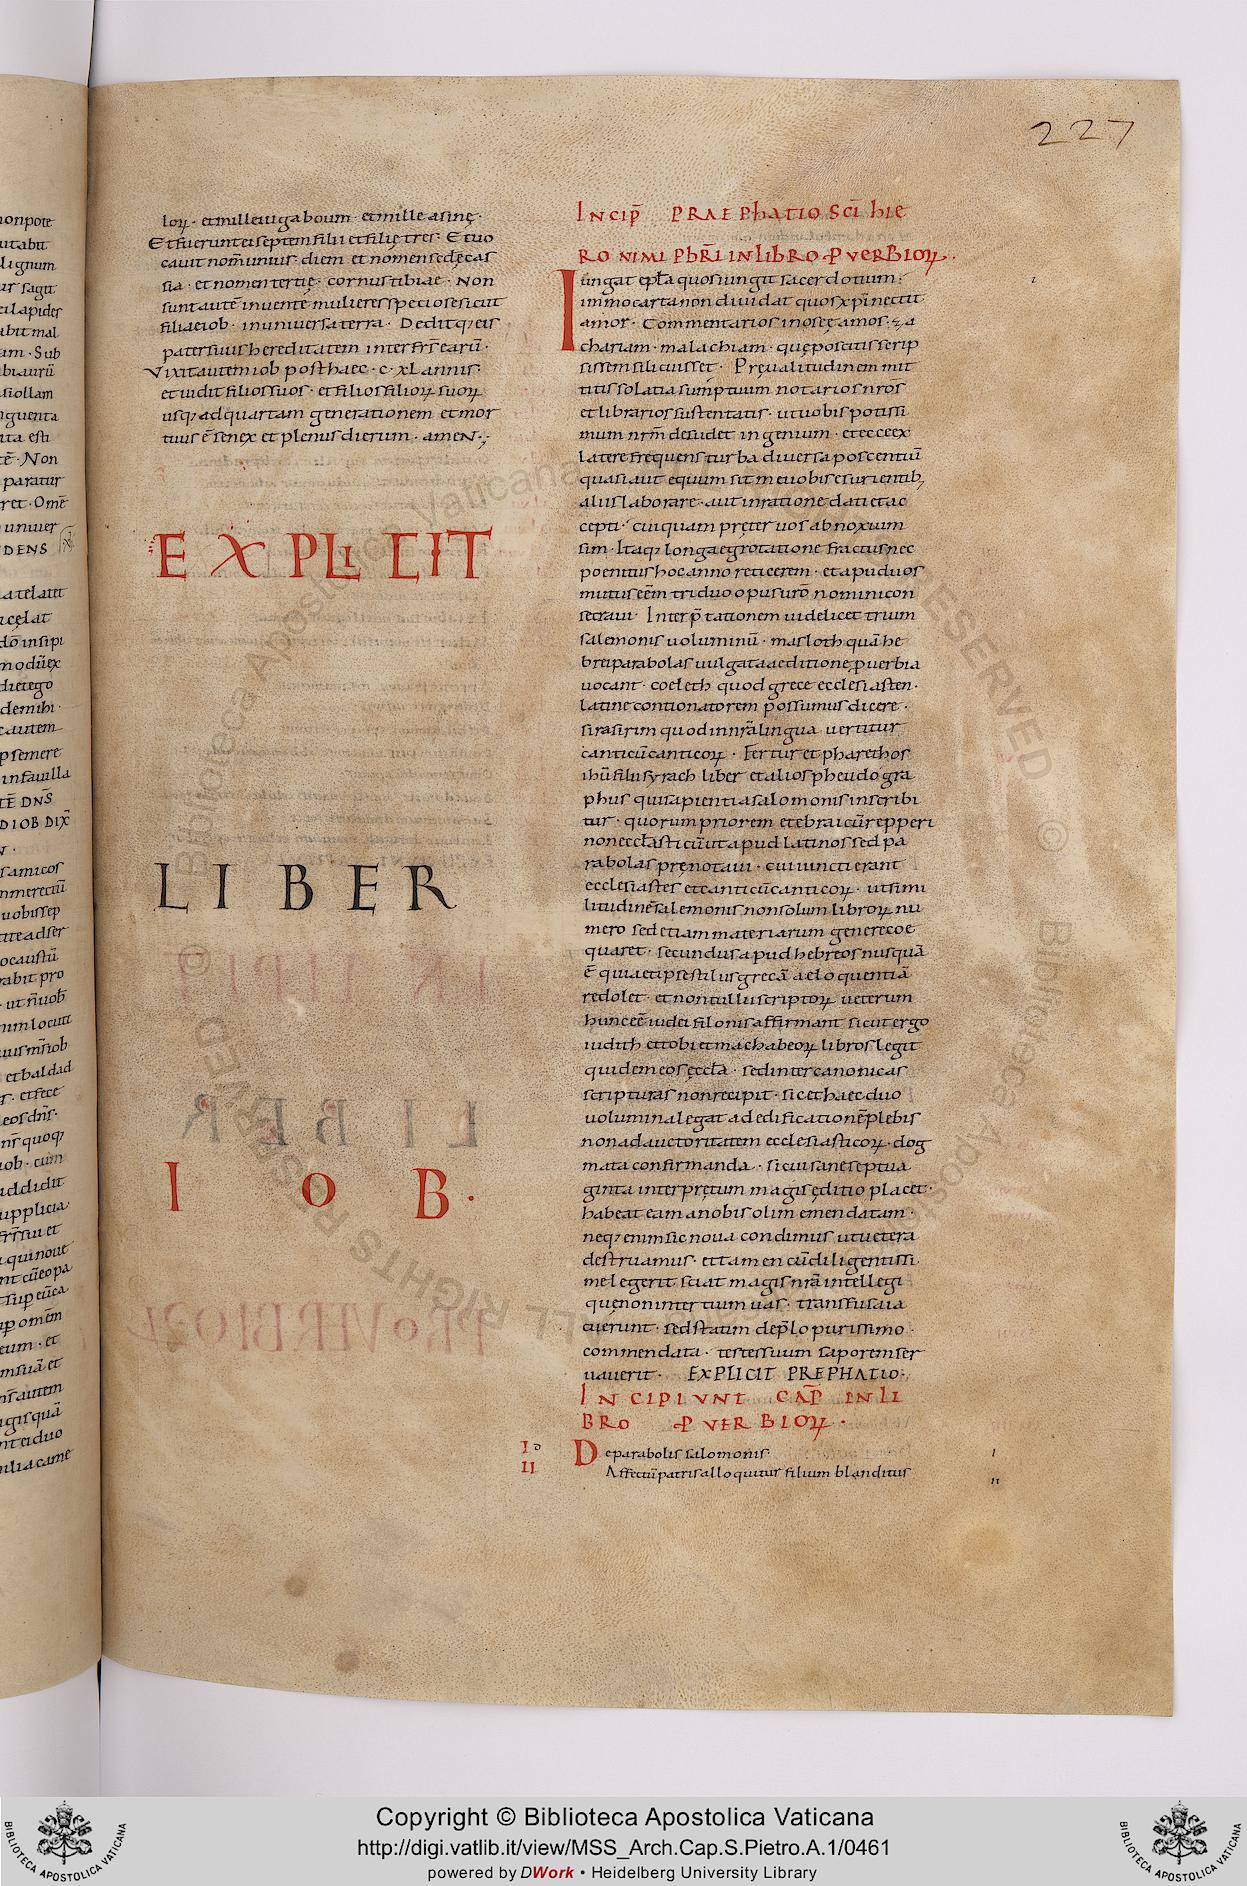 227
lorꝝ · et mille iuga boum · et mille asinę ·
Et fuerunt ei septem filii et filię tres · Et uo
cauit nom̄ unius · diem et nomen sedę cas
sia · et nomen tertię · cornus tibiae · Non
sunt autē inuentę mulieres speciose sicut
filiae iob · in uniuersa terra · Deditq; eis
pater suus hereditatem inter frs̄ earū ·
Vixit autem iob post haec · c · xl annis ·
et uidit filios suos · et filios filiorꝝ suorꝝ
usq; ad quartam generationem et mor
tuus ē senex et plenus dierum · ameN ·;
EXPLICIT
LIBER
IOB ·
INCIP̄ PRAEPhATIO SCĪ hIE
RONIMI PBR̄I IN LIBRO PVERBIORꝝ ·
Iungat epl̄a quos iungit sacerdotium ·
immo carta non diuidat quos xp̄i nectit
amor · Commentarios in oseę amos · & za
chariam · malachiam · quę poscitis scrip
sissem si licuisset · Pręualitudinem mit
titis solatia sumptuum notarios nr̄os
et librarios sustentatis · ut uobis potissi
mum nr̄m desudet ingenium · et ecce ex
latere frequens turba diuersa poscentiū
quasi aut equum sit me uobis esurientib;
aliis laborare · aut in ratione dati et ac
cepti · cuiquam pręter uos abnoxium
sim · Itaq; longa egrotatione fractus nec
poenitus hoc anno reticerem · et apud uos
mutus eēm tridui opus ur̄o nomini con
secraui · Interp̄tationem uidelicet trium
salemonis uoluminū · masloth quā he
brei parabolas uulgata aeditione puerbia
uocant · coeleth quod grece ecclesiasten ·
latine contionatorem possumus dicere ·
sirasirim quod in nr̄a lingua uertitur
canticū canticorꝝ · Fertur et pharethos
ihū filii syrach liber et alios pheudogra
phus qui sapientia salomonis inscribi
tur · quorum priorem et ebraicū repperi
non eccl̄asticū ut apud latinos sed pa
rabolas pręnotaui · cui iuncti erant
ecclesiastes et canticū canticorꝝ · ut simi
litudinē salemonis non solum librorꝝ nu
mero sed etiam materiarum genere coe
quaret · secundus apud hebreos nusquā
ē quia et ipse stilus grecā aeloquentiā
redolet · et nonnulli scriptorꝝ ueterum
hunc eē iudei filonis affirmant sicut ergo
iudith et tobi et machabeorꝝ libros legit
quidem eos ęccl̄a · sed inter canonicas
scripturas non recipit · sic et haec duo
uolumina legat ad edificationē plebis
non ad auctoritatem ecclesiasticorꝝ · dog
mata confirmanda · si cui sane septua
ginta interpretum magis ęditio placet ·
habeat eam a nobis olim emendatam ·
neq; enim sic noua condimus ut uetera
destruamus · et tamen cū diligentissi
me legerit sciat magis nr̄a intellegi
quę non in tertium uas · transfusa ia
cuerunt · sed statim de plo purissimo ·
commendata · teste suum saporem ser
uauerit · EXPLICIT PREPHATIO ·
INCIPIVNT CAP̄ IN LI
BRO PVERBIORꝝ ·
I De parabolis salomonis · I
II Affectū patris alloquitur filium blanditus II
Copyright © Biblioteca Apostolica Vaticana
http://digi.vatlib.it/view/MSS_Arch.Cap.S.Pietro.A.1/0461
powered by DWork • Heidelberg University Library